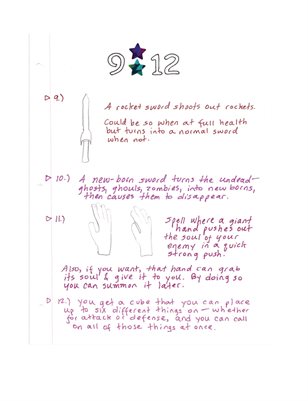 9 12
9.) A rocket sword shoots out rockets.
Could be so when at full health
but turns into a normal sword
when not.
10.) A new-born sword turns the undead—
ghosts, ghouls, zombies, into new borns,
then causes them to disappear.
11.) Spell where a giant
hand pushes out
the soul of your
enemy in a quick
strong push.
Also, if you want, that hand can grab
its soul & give it to you. By doing so
you can summon it later.
12.) You get a cube that you can place
up to six different things on — whether
for attack or defense, and you can call
on all of those things at once.